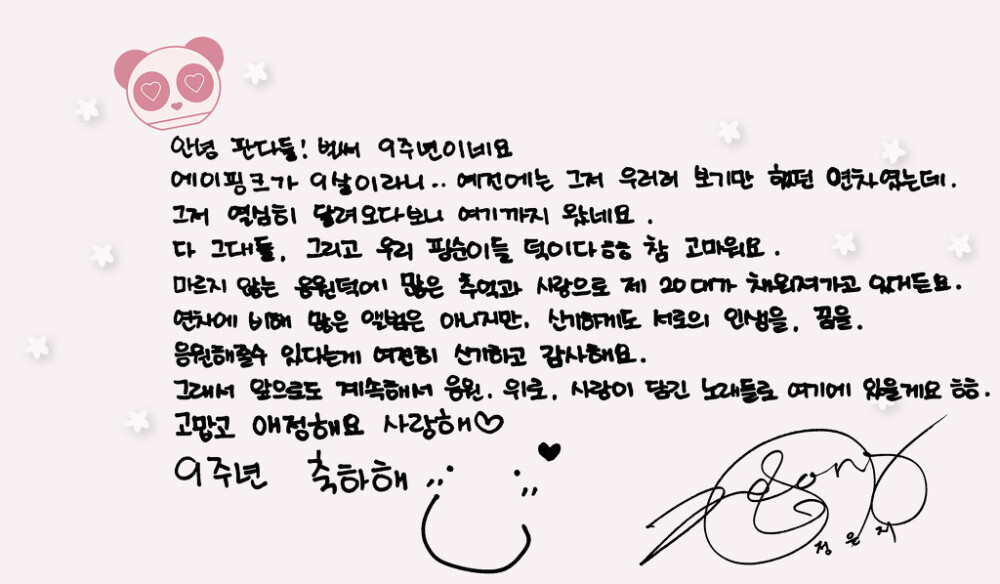 안녕 판다들! 벌써 9주년이네요
에이핑크가 9살이라니.. 예전에는 그저 우러러 보기만 했던 연차였는데.
그저 열심히 달려오다보니 여기까지 왔네요.
다 그대들, 그리고 우리 핑순이들 덕이다ㅎㅎ 참 고마워요.
마르지 않는 응원덕에 많은 추억과 사랑으로 제 20대가 채워져가고 있거든요.
연차에 비해 많은 앨범은 아니지만, 신기하게도 서로의 인생을, 꿈을,
응원해줄수 있다는게 여전히 신기하고 감사해요.
그래서 앞으로도 계속해서 응원, 위로, 사랑이 담긴 노래들로 여기에 있을게요 ㅎㅎ.
고맙고 애정해요 사랑해♡
9주년 축하해
정은지